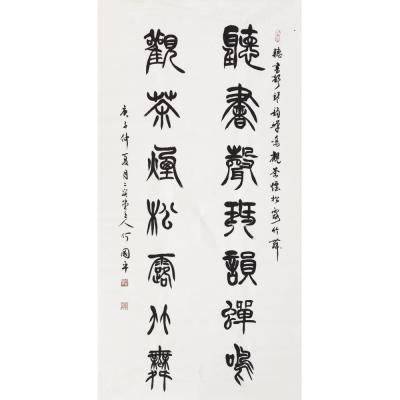 聽書聲琴韻蟬鳴觀茶煙松露竹舞
聽書聲琴韻蟬鳴
觀茶煙松露竹舞
庚子仲夏月人何國平